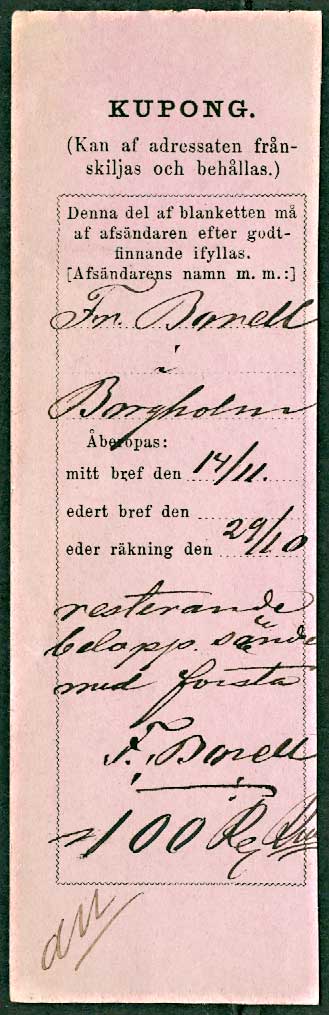 KUPONG.
(Kan af adressaten från-
skiljas och behållas.)
Denna del af blanketten må
af afsändaren efter godt-
finnande ifyllas.
[Afsändarens namn m. m.:]
Fr. Borell
i
Borgholm
Åberopas:
mitt bref den 14/11.
edert bref den
eder räkning den 29/10
resterande
belopp. sände
med första
F. Borell
100